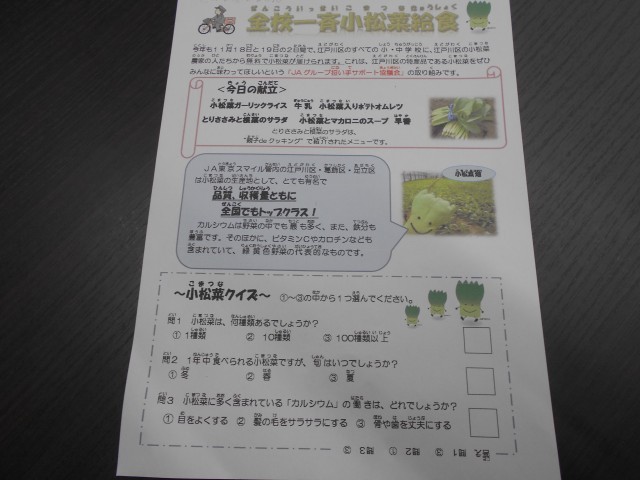 全校一斉小松菜給食
今年も11月18日と19日の2日間で、江戸川区のすべての小・中学校に、江戸川区の小松菜
農家の人たちから無料で小松菜が届けられます。これは、江戸川区の特産品である小松菜をぜひ
みんなに味わってほしいという「JAグループ担い手サポート協議会」の取り組みです。
＜今日の献立＞
小松菜ガーリックライス 牛乳 小松菜入りポテトオムレツ
とりささみと根菜のサラダ 小松菜とマカロニのスープ 早香
とりささみと根菜のサラダは、
"親子deクッキング"で紹介されたメニューです。
JA東京スマイル管内の江戸川区・葛飾区・足立区
は小松菜の生産地として、とても有名で
品質、収穫量ともに
全国でもトップクラス！
カルシウムは野菜の中でも最も多く、また、鉄分も
豊富です。そのほかに、ビタミンCやカロチンなども
含まれていて、緑黄色野菜の代表的なものです。
小松菜畑
～小松菜クイズ～ ①～③の中から1つ選んでください。
問1 小松菜は、何種類あるでしょうか？
① 1種類 ② 10種類 ③ 100種類以上
問2 1年中食べられる小松菜ですが、旬はいつでしょうか？
① 冬 ② 春 ③ 夏
問3 小松菜に多く含まれている「カルシウム」の働きは、どれでしょうか？
① 目をよくする ② 髪の毛をサラサラにする ③ 骨や歯を丈夫にする
答え 問1 ③ 問2 ① 問3 ③